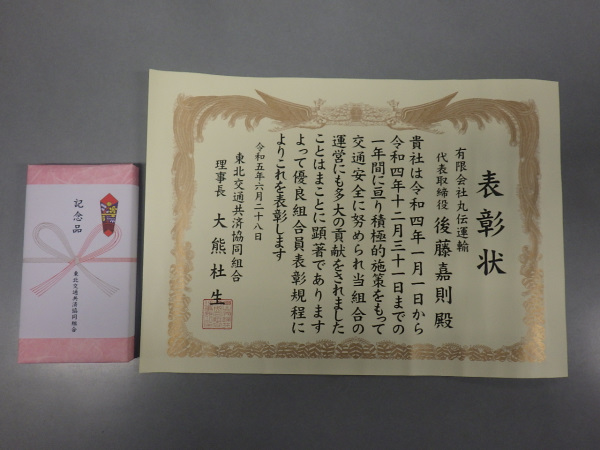 表彰状
有限会社丸伝運輸
代表取締役 後藤嘉則殿
貴社は令和四年一月一日から
令和四年十二月三十一日までの
一年間に亘り積極的施策をもって
交通安全に努められ当組合の
運営にも多大の貢献をされました
ことはまことに顕著であります
よって優良組合員表彰規程に
よりこれを表彰します
令和五年六月二十八日
東北交通共済協同組合
理事長 大熊杜生
記念品
東北交通共済協同組合